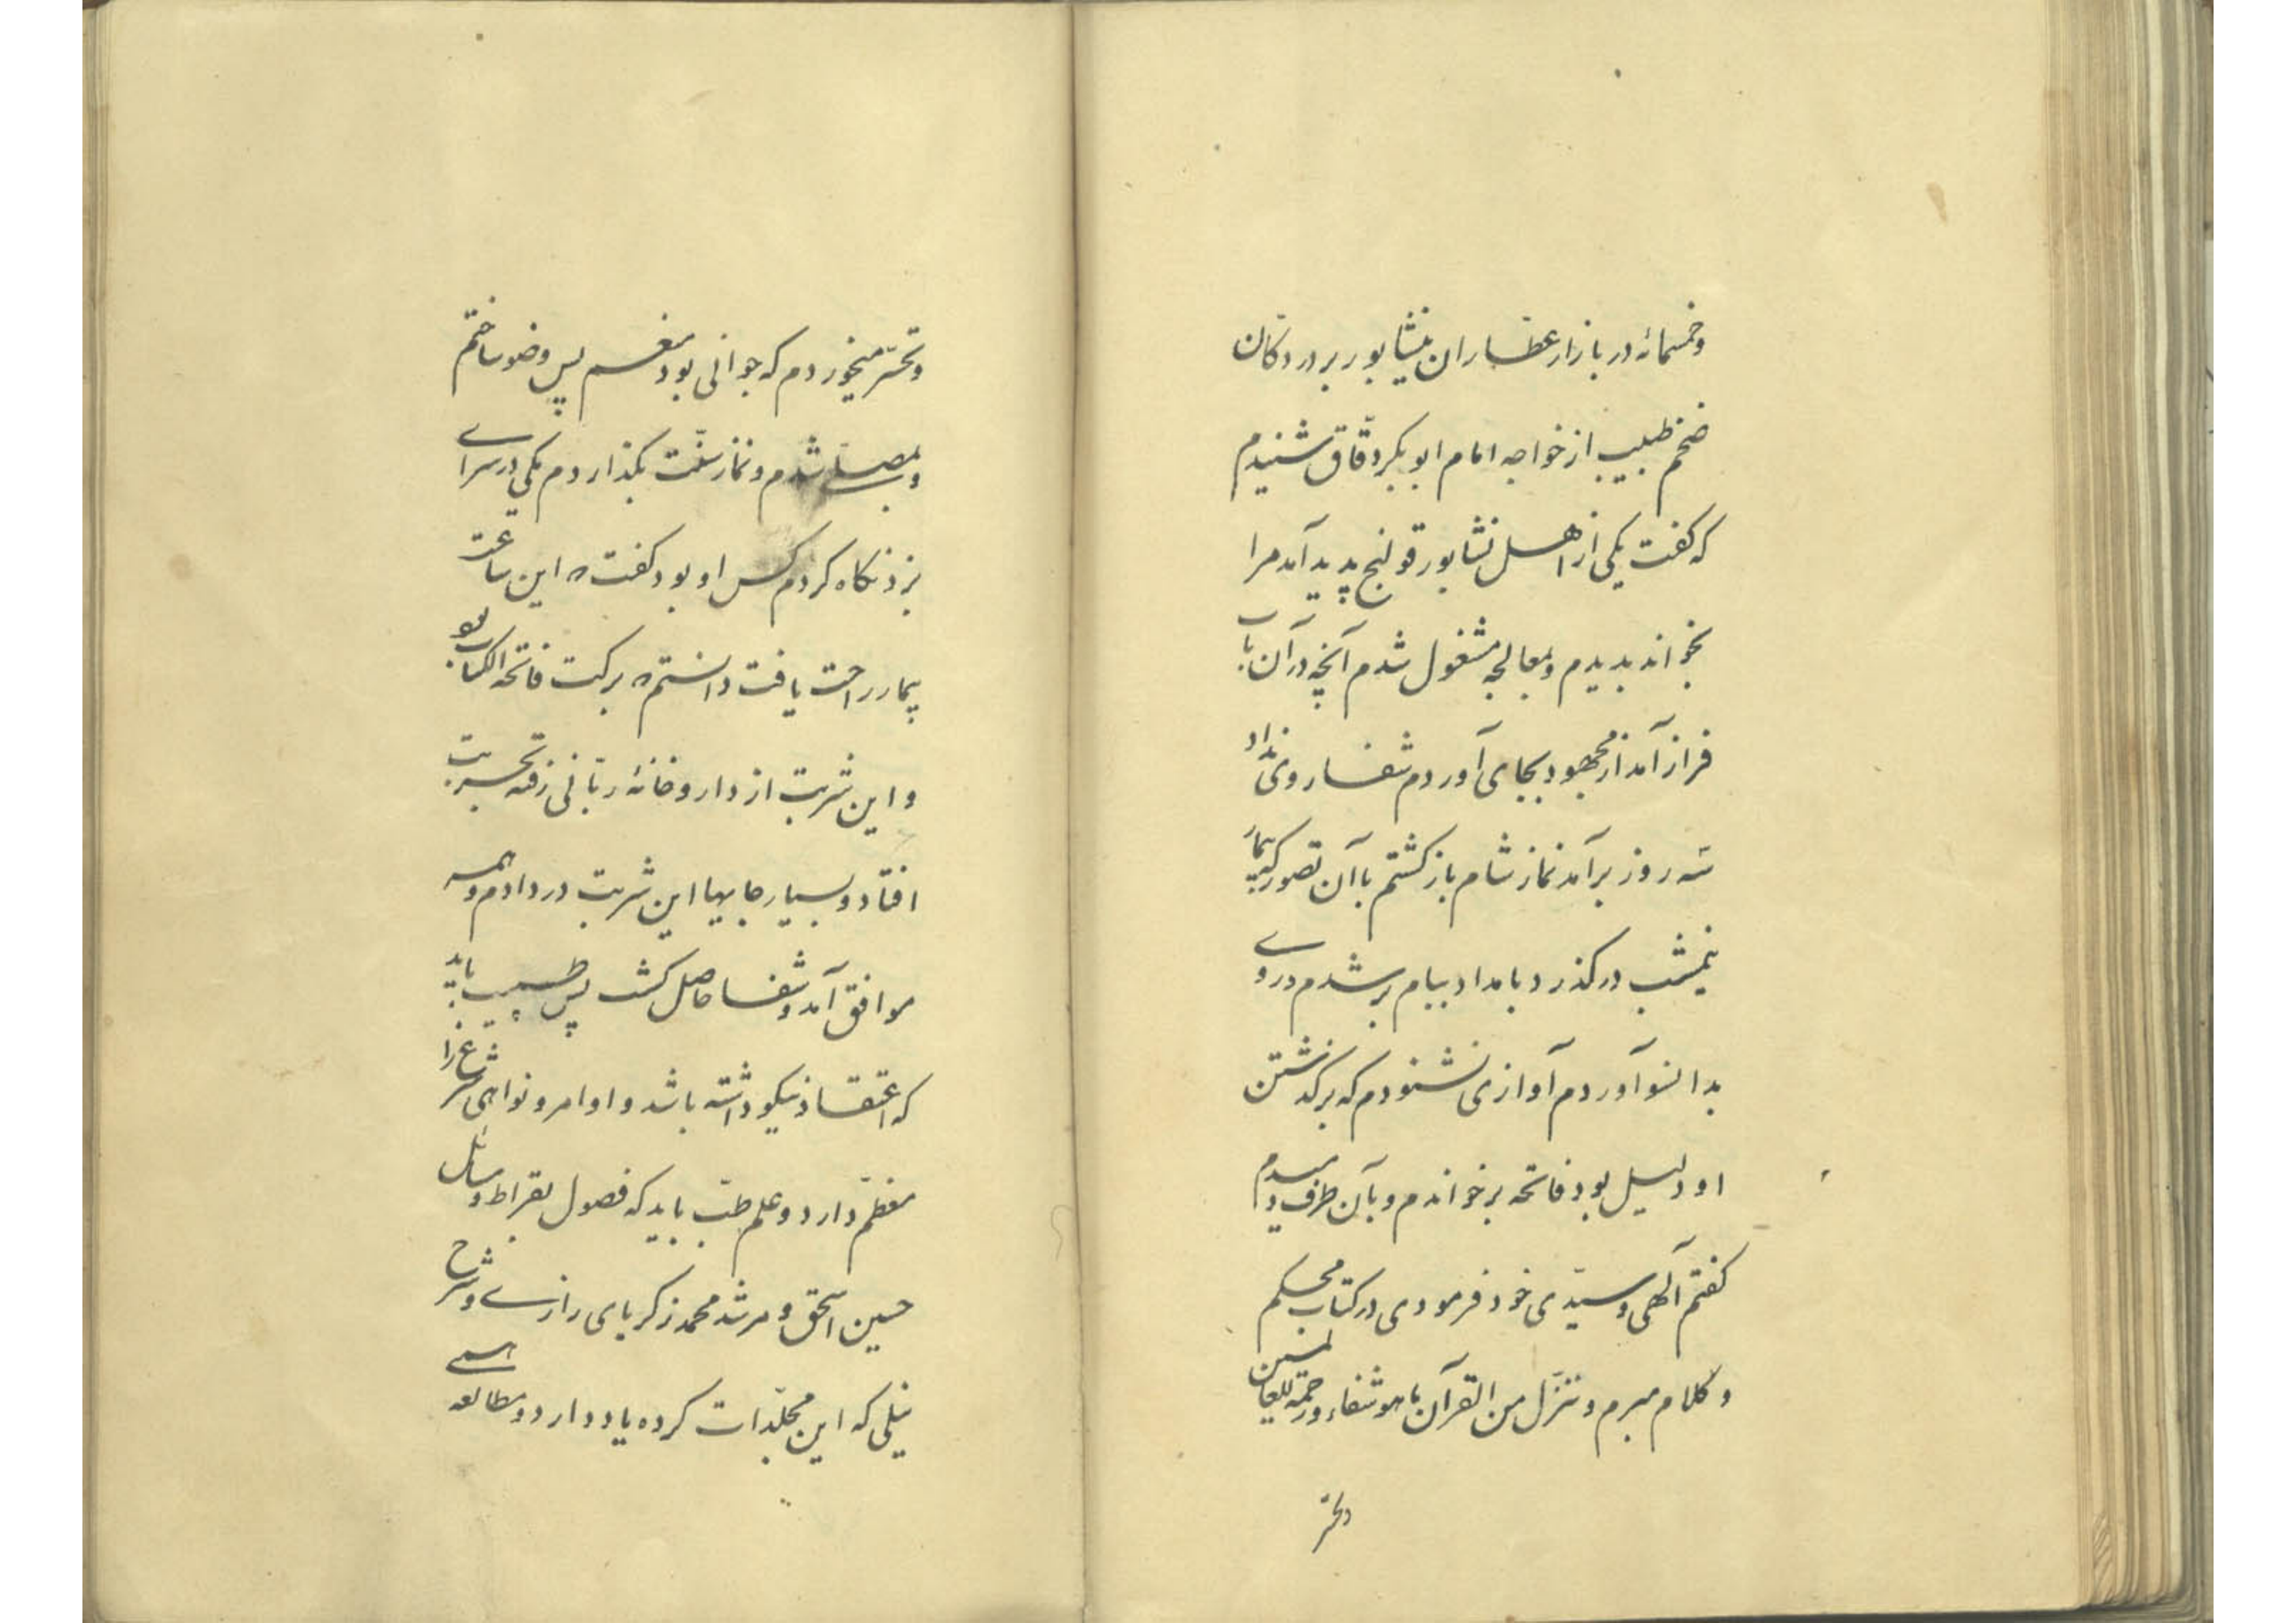 وخمسمائه در بازار عطاران نیشابور بر در دکان
ضخم طبیب از خواجه امام ابو بکر دقّاق شنیدم
که کفت یکی از اهل نشابور قولنج پدید آمد مرا
بخواند بدیدم و بمعالجه مشغول شدم آنچه در آن باب
فراز آمد از مجهود بجای آوردم شفا روی نداد
سه روز برآمد نماز شام باز کشتم با آن تصور که بیمار
نیمشب در کذرد بامداد ببام بر شدم و روے
بدانسو آوردم آوازی نشنودم که بر کذشتن
او دلیل بود فاتحه بر خواندم و بآن طرف دمیدم
کفتم آلهی و سیّدی خود فرمودی در کتاب محکم
و کلام مبرم و ننزّل من القرآن ما هو شفاء و رحمة للعالمین
وتحسّر
و تحسّر میخوردم که جوانی بود منعم پس وضو ساختم
و بمصلّے شدم و نماز سنّت بکذاردم یکی در سراے
بزد نکاه کردم کس او بود کفت این ساعت
بیمار راحت یافت دانستم برکت فاتحه الکتاب بود
و این شربت از داروخانهٔ ربّانی رفته تجربت
افتاد و بسیار جایها این شربت در دادم و همه
موافق آمد و شفا حاصل کشت پس طبیب باید
که اعتقاد نیکو داشته باشد و اوامر و نواهی شرع را
معظّم دارد و علم طبّ باید که فصول بقراط و مسائل
حسین اسحق و مرشد محمد زکریای رازے و شرح
نیلی که این مجلّدات کرده یاد دارد و مطالعه همے